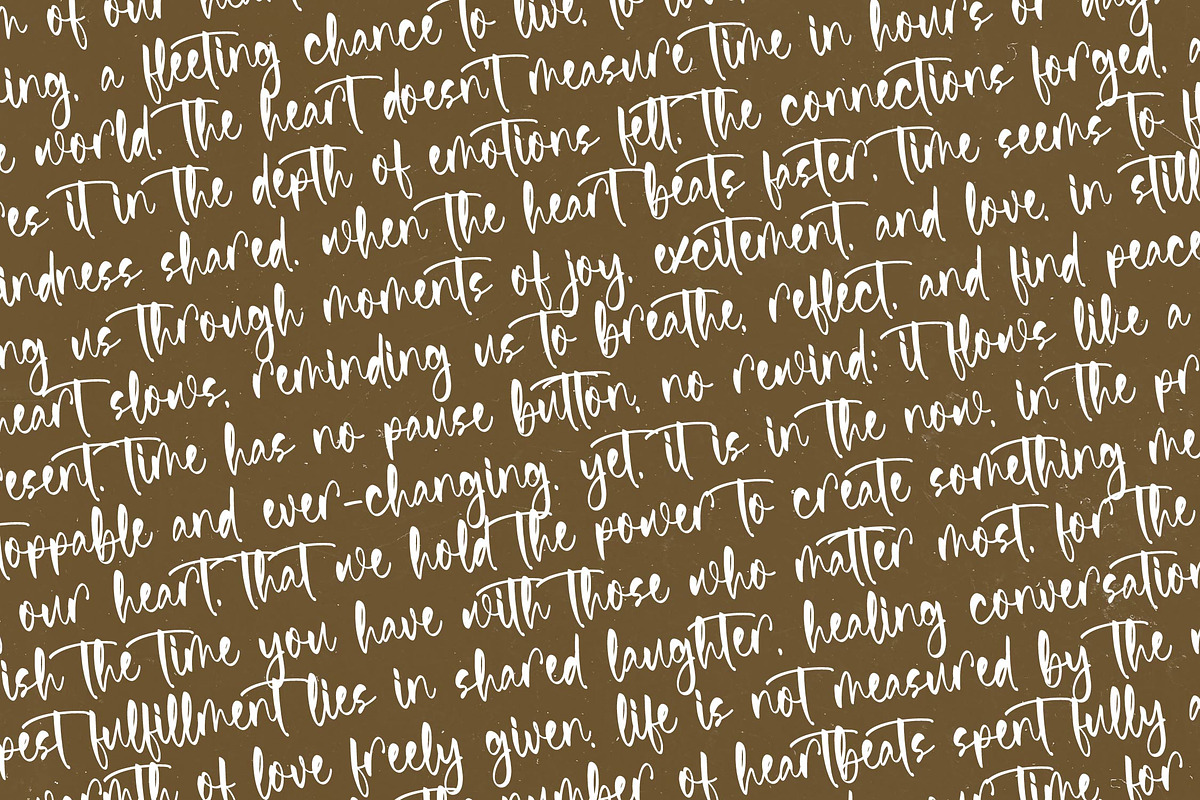 of our heart
ing, a fleeting chance to live, to
e world. the heart doesn't measure time in hours or day
es it in the depth of emotions felt, the connections forged, a
indness shared. when the heart beats faster, time seems to f
ng us through moments of joy, excitement, and love. in still
heart slows, reminding us to breathe, reflect, and find peace
resent. time has no pause button, no rewind; it flows like a
toppable and ever-changing. yet, it is in the now, in the pr
our heart, that we hold the power to create something me
ish the time you have with those who matter most, for the
pest fulfillment lies in shared laughter, healing conversation
warmth of love freely given. life is not measured by the
number of heartbeats spent fully a
time, for